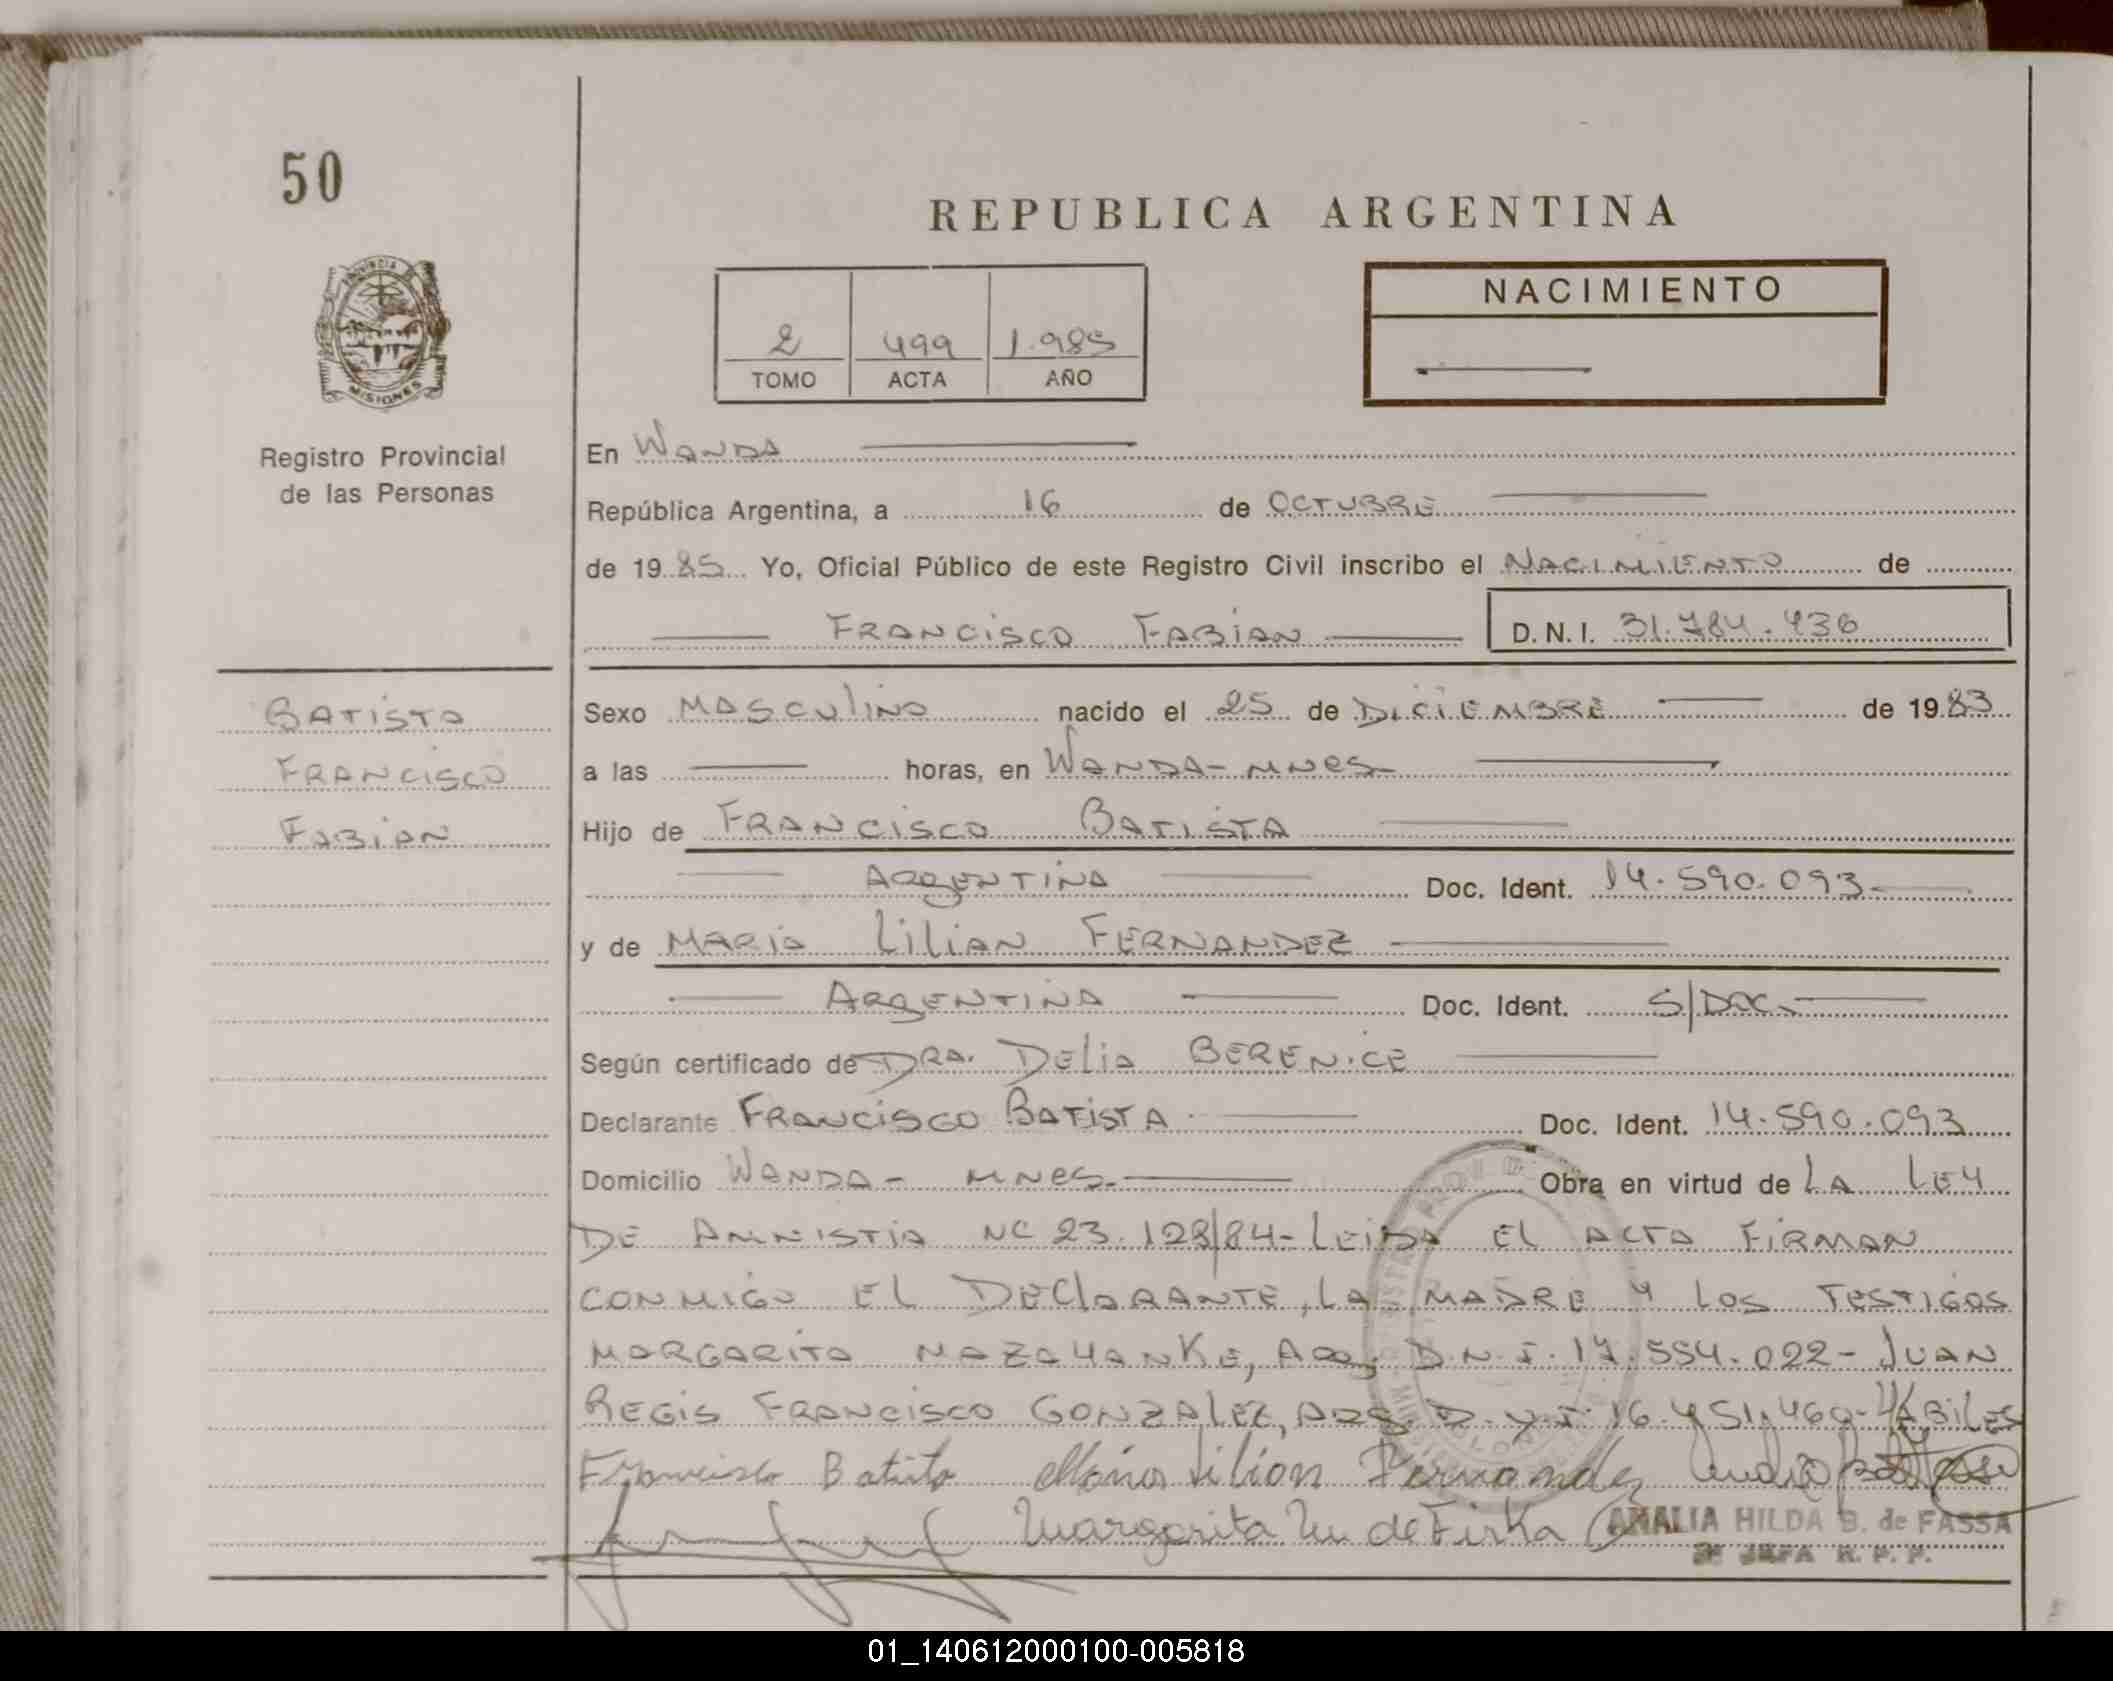 50
REPUBLICA ARGENTINA
PROVINCIA DE
MISIONES
NACIMIENTO
2 499 1.985
TOMO ACTA AÑO
Registro Provincial
de las Personas
En WANDA
República Argentina, a 16 de OCTUBRE
de 1985 Yo, Oficial Público de este Registro Civil inscribo el NACIMIENTO de
FRANCISCO FABIAN D.N.I. 31.784.436
BATISTA
FRANCISCO
FABIAN
Sexo MASCULINO nacido el 25 de DICIEMBRE de 1983
a las horas, en WANDA - MNES-
Hijo de FRANCISCO BATISTA
ARGENTINA Doc. Ident. 14.590.093-
y de MARIA LILIAN FERNANDEZ
ARGENTINA Doc. Ident. S/DOC-
Según certificado de DRA. DELIA BERENICE
Declarante FRANCISCO BATISTA Doc. Ident. 14.590.093
Domicilio WANDA - MNES- Obra en virtud de LA LEY
DE AMNISTIA Nº 23.128/84- LEIDA EL ACTA FIRMAN
CONMIGO EL DECLARANTE, LA MADRE Y LOS TESTIGOS
MARGARITA MAZAYANKE, ARG. D.N.I. 17.554.022- JUAN
REGIS FRANCISCO GONZALEZ, ARG. D.N.I. 16.451.460- HABILES
Francisco Batista Maria Lilian Fernandez
Margarita M de Firka AMALIA HILDA B. de FASSA
JEFA R. P. P.
01_140612000100-005818